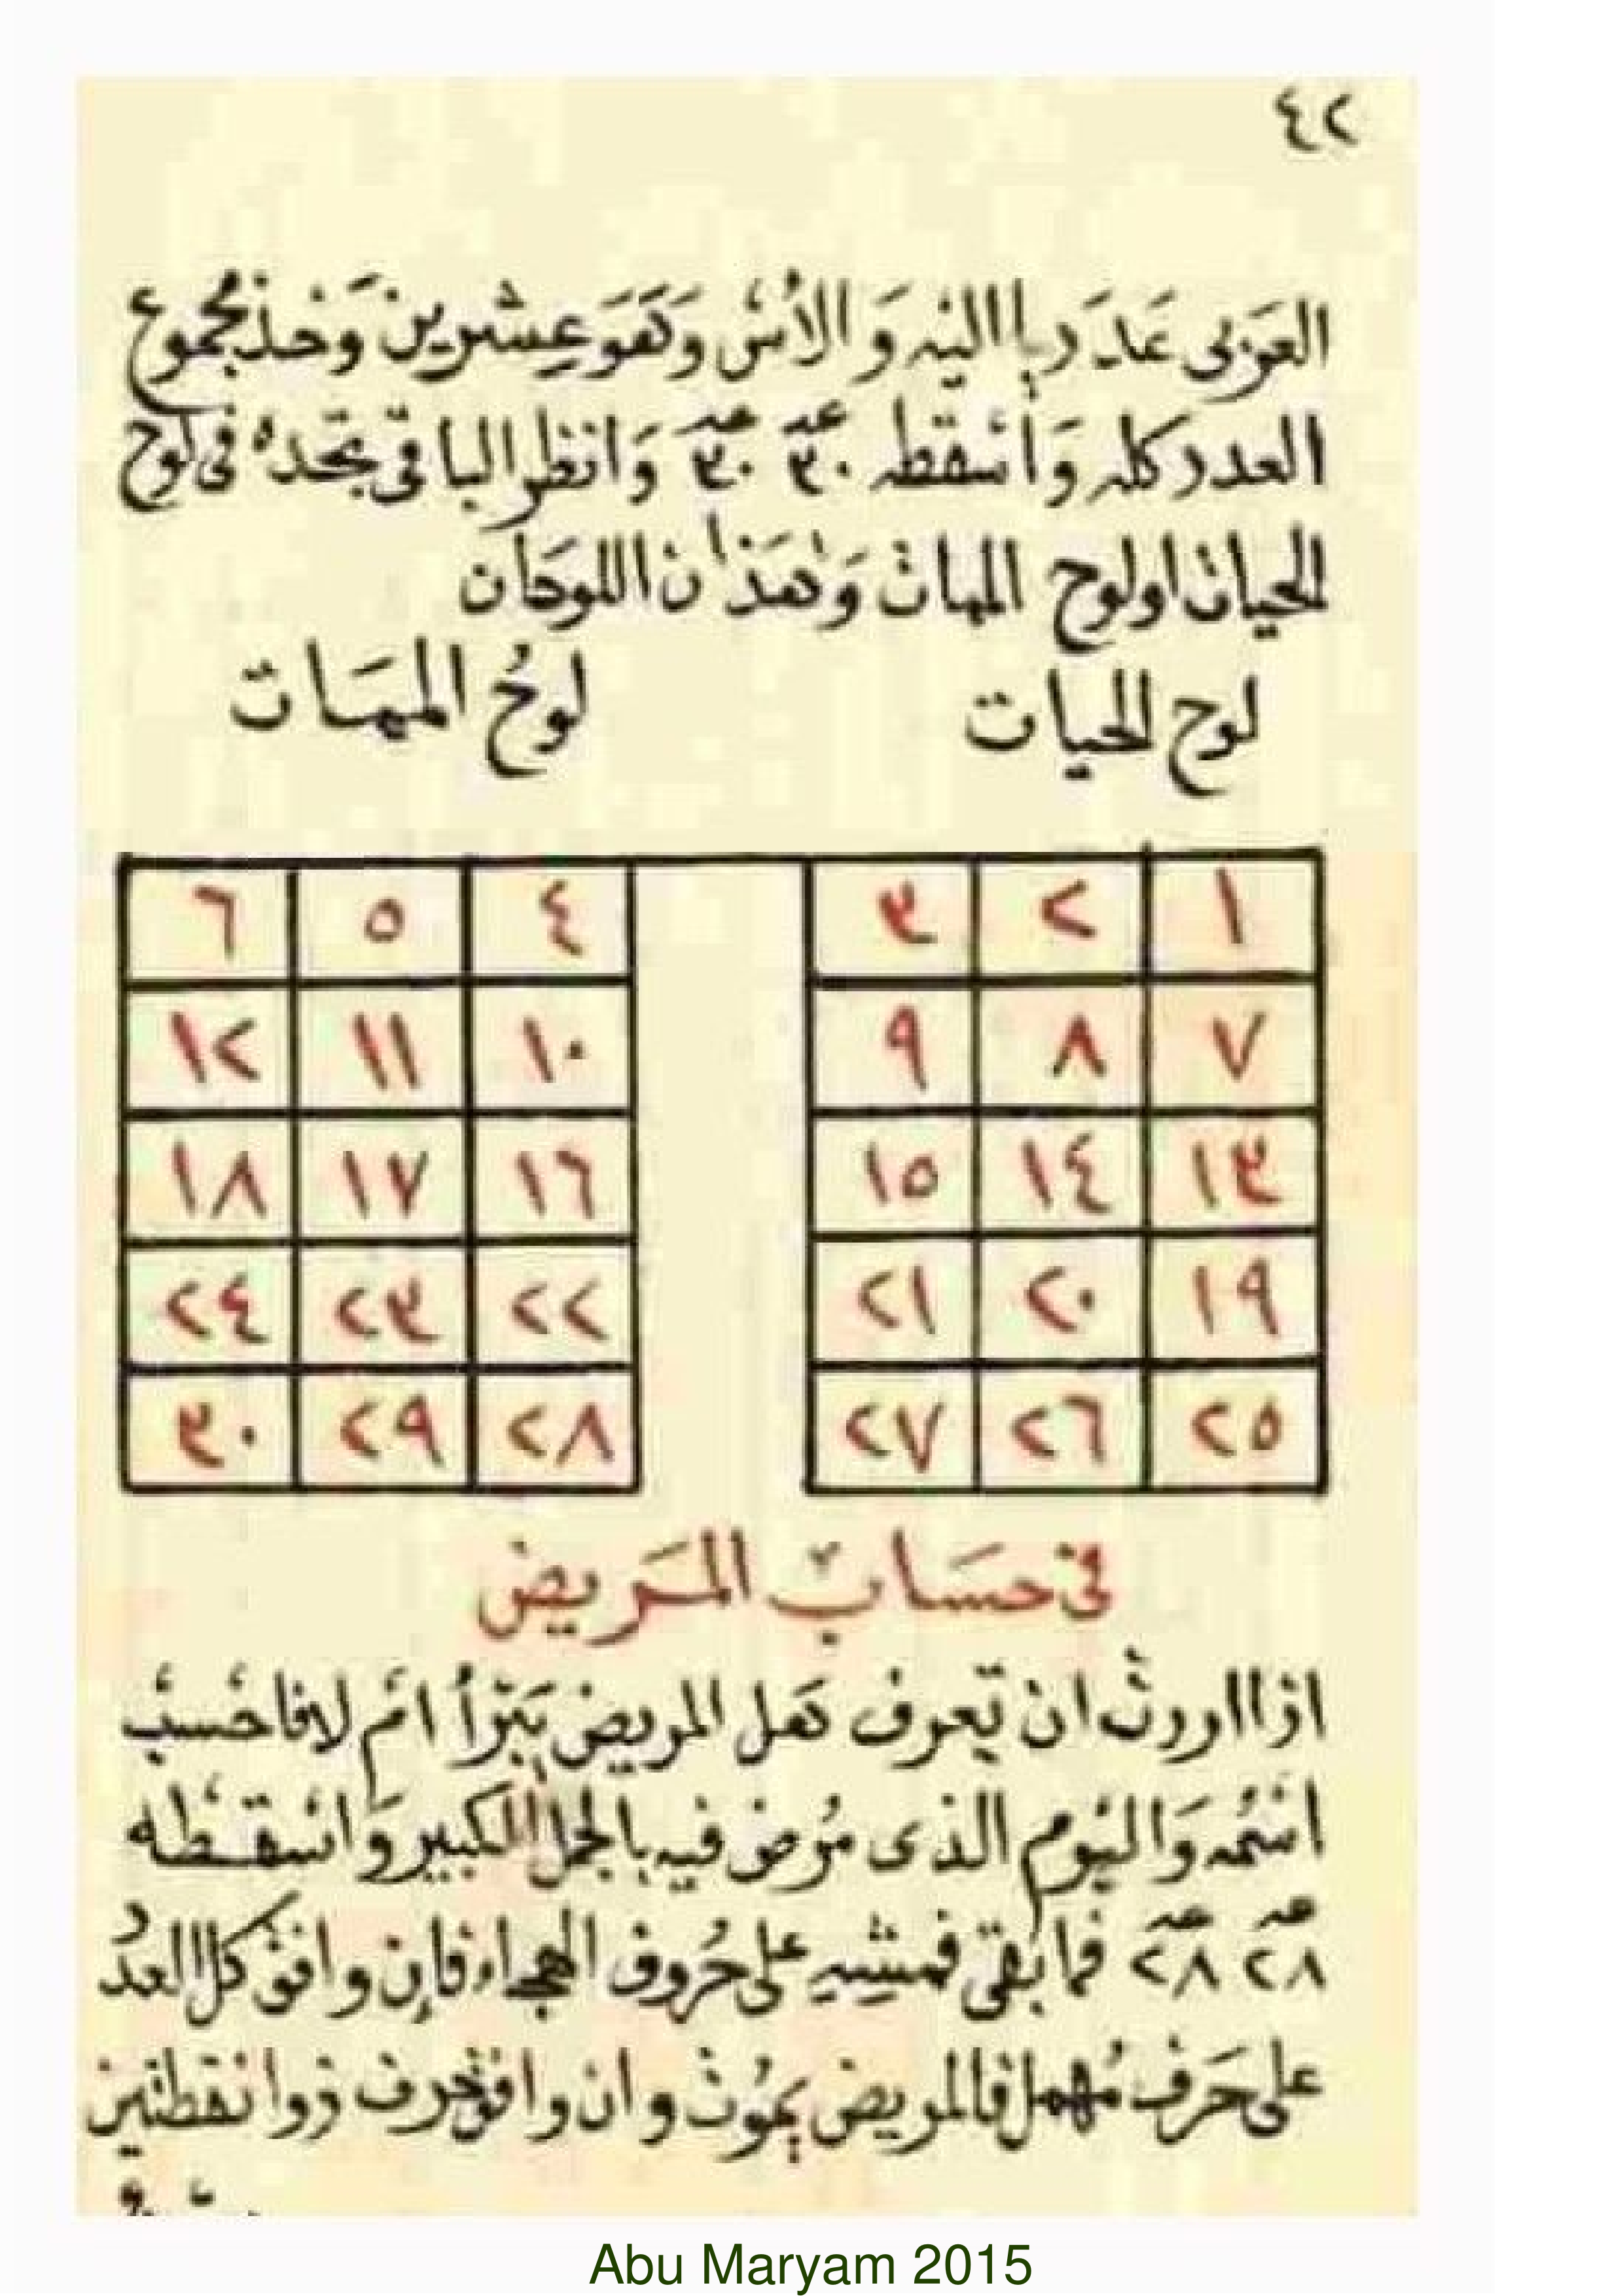 ٤٢
العَرَبى عَدَد ربا اليه وَ الاُسْ وَهَوَ عِشرين وَخذ مجموع
العدد كله وَأسْقطه ٣٠ عه ٣٠ عه وَانظر الباقى تجّدهُ فى لوح
الحيات او لوح الممات وَهَذان اللوحَان
لوح الحيات
لوحُ الممَات
١ ٢ ٣ ٤ ٥ ٦
٧ ٨ ٩ ١٠ ١١ ١٢
١٣ ١٤ ١٥ ١٦ ١٧ ١٨
١٩ ٢٠ ٢١ ٢٢ ٢٣ ٢٤
٢٥ ٢٦ ٢٧ ٢٨ ٢٩ ٣٠
فى حسَاب المَريض
اذا اردت ان تعرف هَل المريض يَبْرأ امْ لا فاحْسبْ
اسْمُه وَاليَوم الذى مُرض فيه بالجمل الكبير وَاسْقطه
٢٨ عه ٢٨ عه فما بَقى فمشيه على حُروف الهجاء فإن وافق كل العددُ
على حَرف مُهمل فالمريض يمُوتْ وان وافق حرف ذوا نقطتين
Abu Maryam 2015